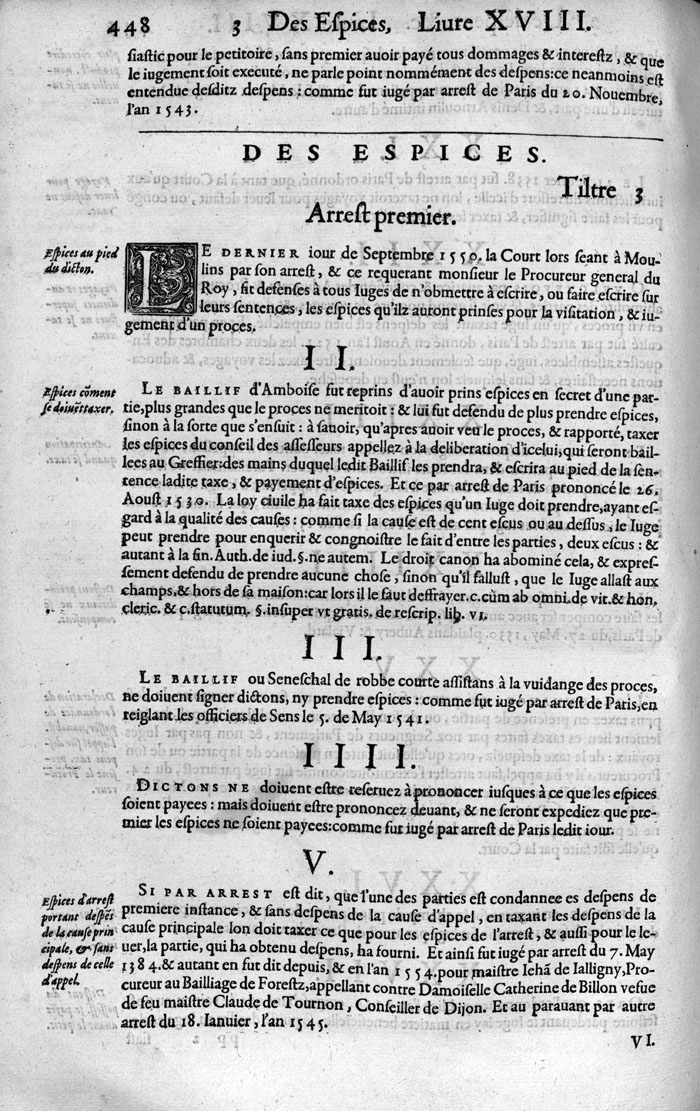 448 3 Des Espices, Liure XVIII.
siastic pour le petitoire, sans premier auoir payé tous dommages & interestz, & que
le iugement soit executé, ne parle point nommément des despens: ce neanmoins est
entendue desditz despens : comme fut iugé par arrest de Paris du 20. Nouembre,
l'an 1543.
DES ESPICES.
Tiltre 3
Arrest premier.
Espices au pied
du dicton.
LE DERNIER iour de Septembre 1550. la Court lors seant à Mou-
lins par son arrest, & ce requerant monsieur le Procureur general du
Roy, fit defenses à tous Iuges de n'obmettre à escrire, ou faire escrire sur
leurs sentences, les espices qu'ilz auront prinses pour la visitation, & iu-
gement d'un proces.
II.
Espices cõment
se doiuẽt taxer.
LE BAILLIF d'Amboise fut reprins d'auoir prins espices en secret d'une par-
tie, plus grandes que le proces ne meritoit : & lui fut defendu de plus prendre espices,
sinon à la sorte que s'ensuit : à sauoir, qu'apres auoir veu le proces, & rapporté, taxer
les espices du conseil des assesseurs appellez à la deliberation d'icelui, qui seront bail-
lees au Greffier: des mains duquel ledit Baillif les prendra, & escrira au pied de la sen-
tence ladite taxe, & payement d'espices. Et ce par arrest de Paris prononcé le 26.
Aoust 1530. La loy ciuile ha fait taxe des espices qu'un Iuge doit prendre, ayant es-
gard à la qualité des causes : comme si la cause est de cent escus ou au dessus, le Iuge
peut prendre pour enquerir & congnoistre le fait d'entre les parties, deux escus : &
autant à la fin. Auth. de iud. §. ne autem. Le droit canon ha abominé cela, & expres-
sement defendu de prendre aucune chose, sinon qu'il fallust, que le Iuge allast aux
champs, & hors de sa maison: car lors il le faut deffrayer. c. cùm ab omni. de vit. & hon.
cleric. & c. statutum. §. insuper vt gratis. de rescrip. lib. VI.
III.
LE BAILLIF ou Seneschal de robbe courte assistans à la vuidange des proces,
ne doiuent signer dictons, ny prendre espices : comme fut iugé par arrest de Paris, en
reiglant les officiers de Sens le 5. de May 1541.
IIII.
DICTONS NE doiuent estre reseruez à prononcer iusques à ce que les espices
soient payees : mais doiuent estre prononcez deuant, & ne seront expediez que pre-
mier les espices ne soient payees: comme fut iugé par arrest de Paris ledit iour.
V.
Espices d'arrest
portant despẽs
de la cause prin
cipale, & sans
despens de celle
d'appel.
SI PAR ARREST est dit, que l'une des parties est condannee es despens de
premiere instance, & sans despens de la cause d'appel, en taxant les despens de la
cause principale lon doit taxer ce que pour les espices de l'arrest, & aussi pour le le-
uer, la partie, qui ha obtenu despens, ha fourni. Et ainsi fut iugé par arrest du 7. May
1384. & autant en fut dit depuis, & en l'an 1554. pour maistre Iehã de Ialligny, Pro-
cureur au Bailliage de Forestz, appellant contre Damoiselle Catherine de Billon vefue
de feu maistre Claude de Tournon, Conseiller de Dijon. Et au parauant par autre
arrest du 18. Ianuier, l'an 1545.
VI.